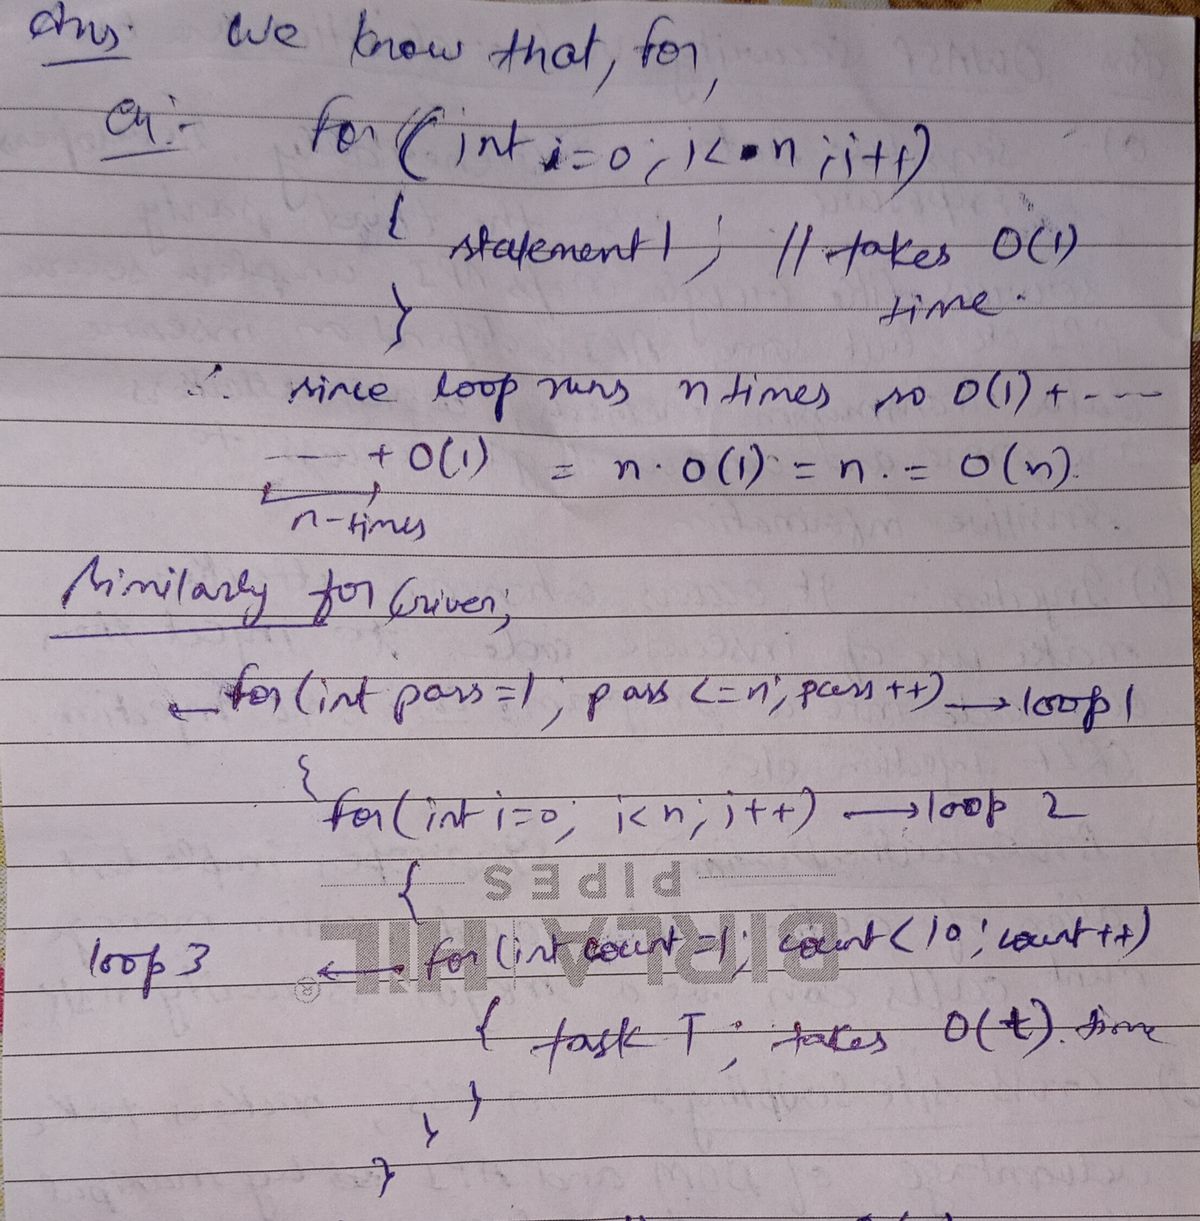 Ans:- We know that, for,
Ex:- for (int i=0; i<n; i++)
{
statement 1; // takes O(1)
time.
}
∴ since loop runs n times so O(1) + ----
---- + O(1) = n · O(1) = n · = O(n).
n-times
Similarly for Given;
for (int pass=1; pass <=n; pass ++) → loop 1
{
for (int i=0; i<n; i++) → loop 2
{
PIPES
BIRLA HIL
loop 3 ← for (int count=1; count<10; count++)
{ task T; takes O(t). time
}
}
}